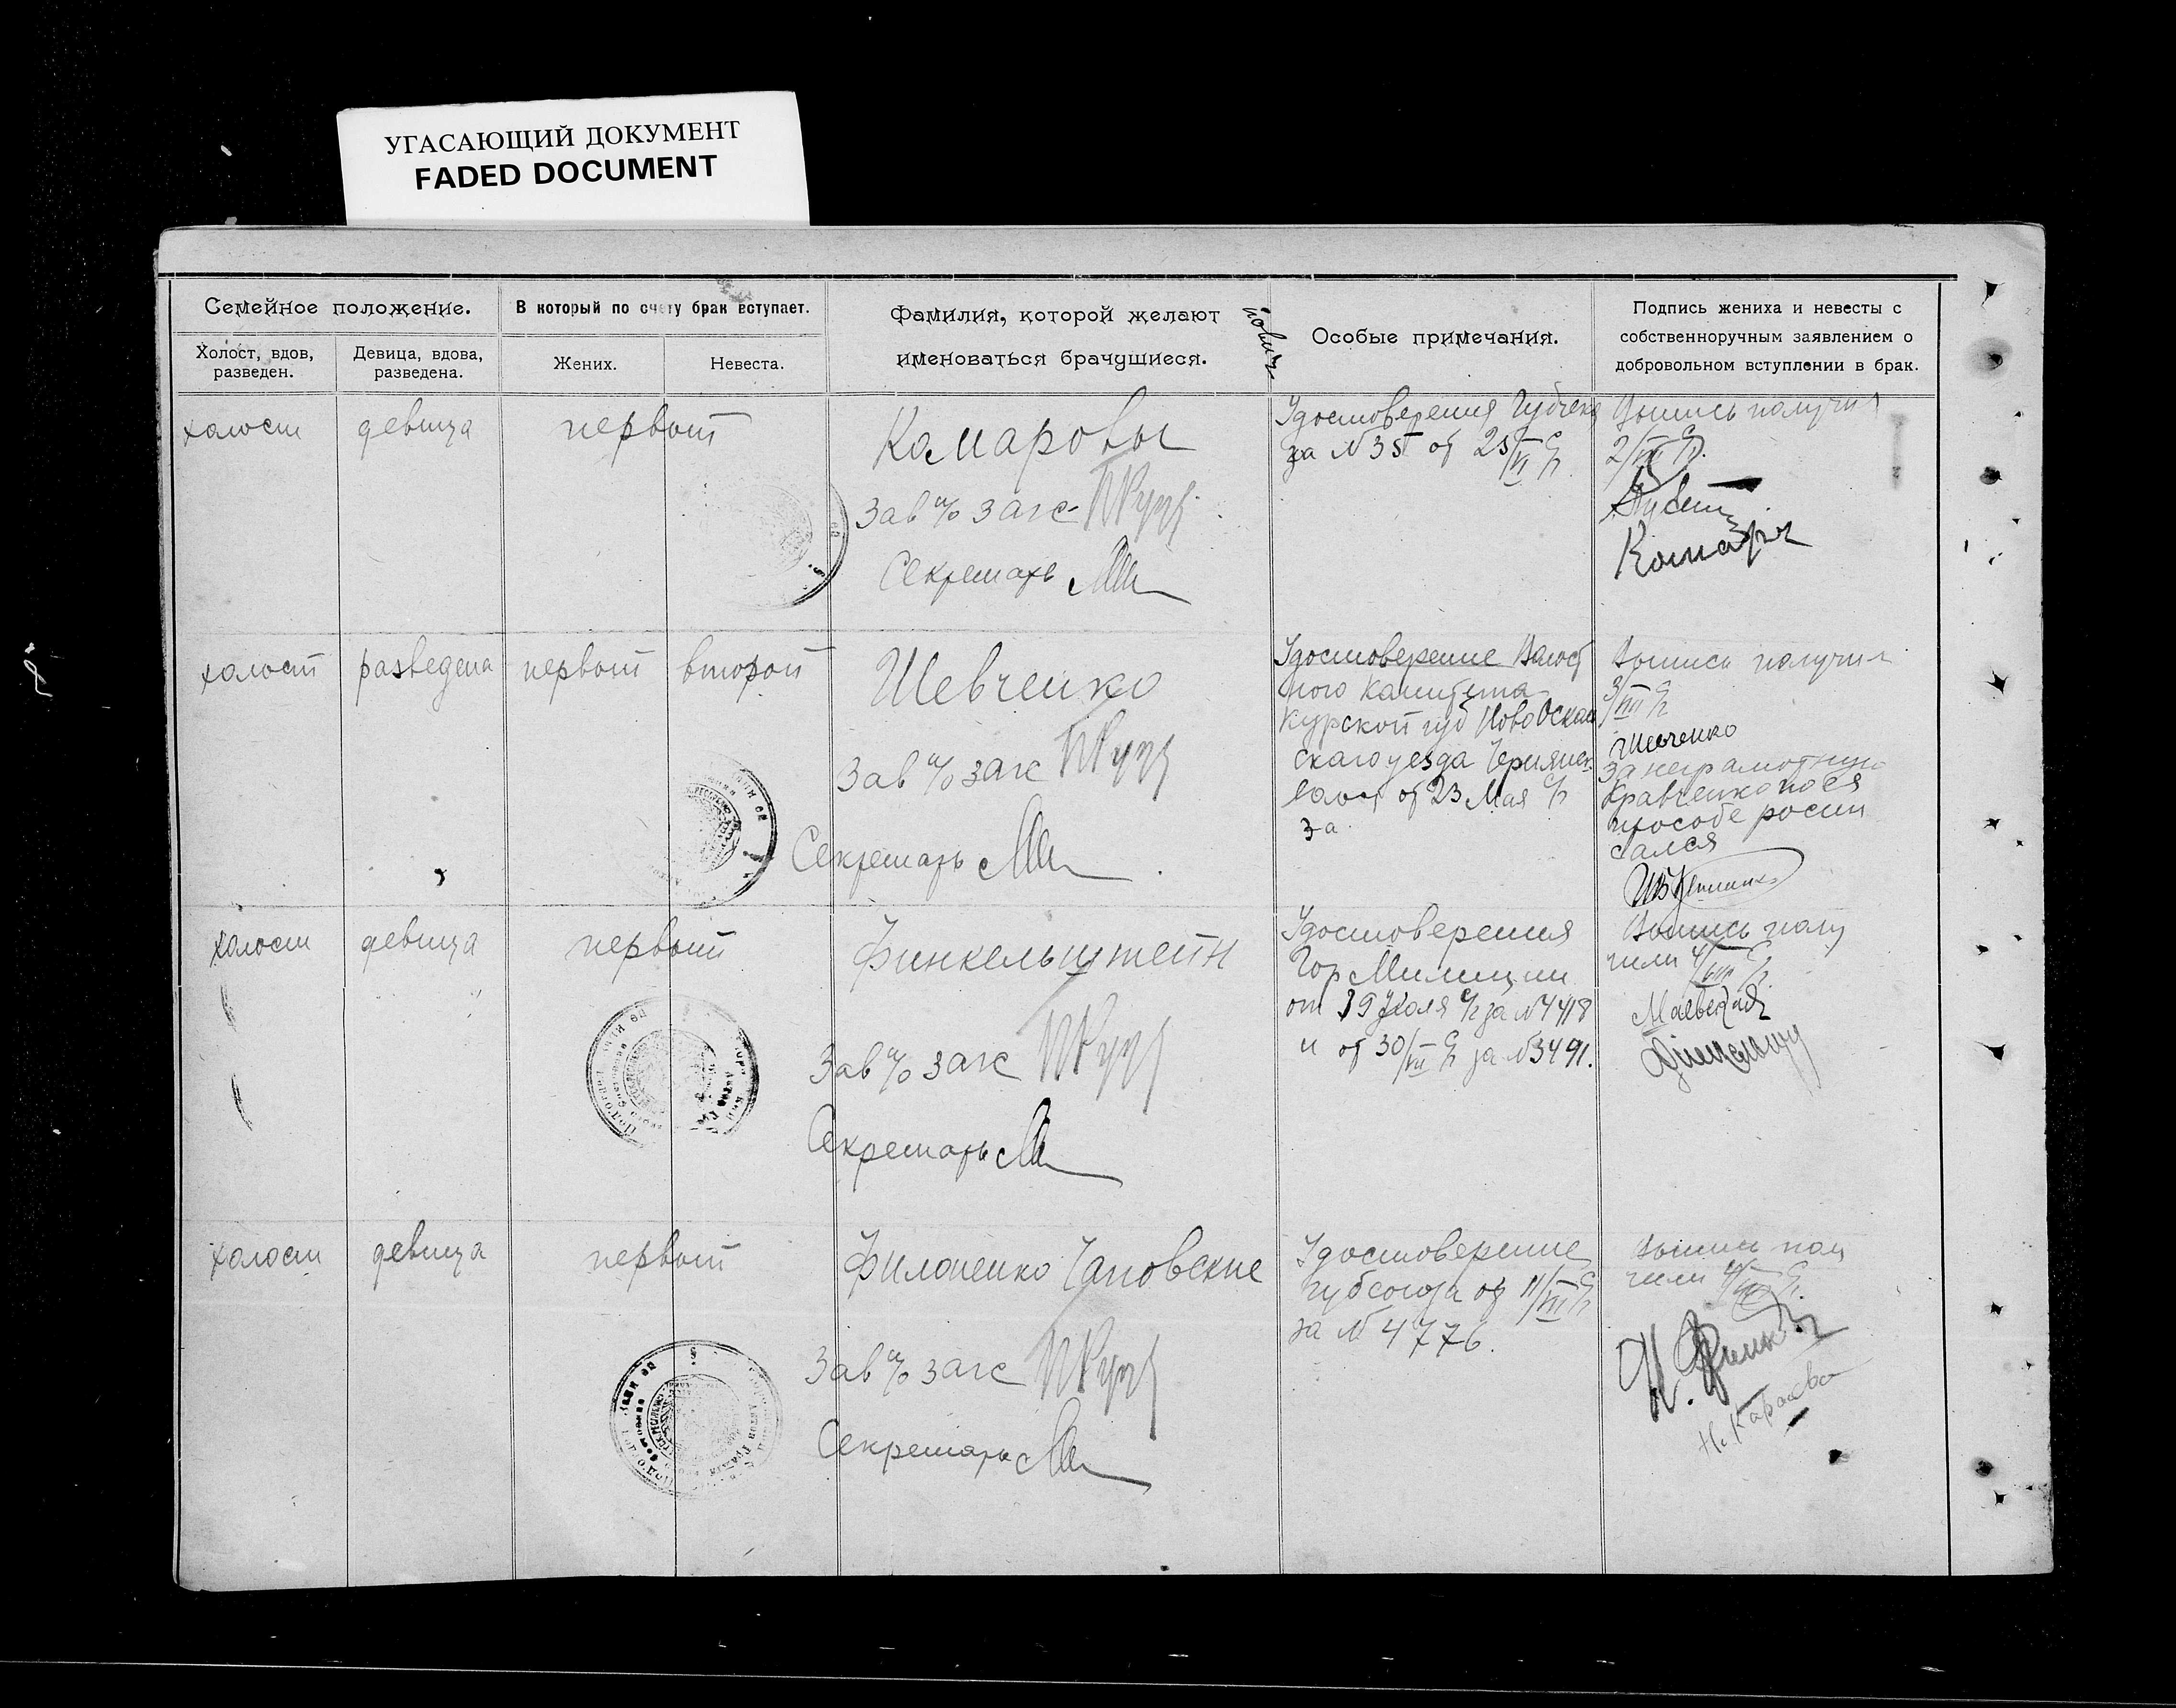 УГАСАЮЩИЙ ДОКУМЕНТ
FADED DOCUMENT
Семейное положение.
Холост, вдов,
разведен.
Девица, вдова,
разведена.
В который по счету брак вступает.
Жених.
Невеста.
Фамилия, которой желают
именоваться брачущиеся.
Особые примечания.
Подпись жениха и невесты с
собственноручным заявлением о
добровольном вступлении в брак.
холост
девица
первый
Комаровы
Зав п/о загс
Секретарь
Удостоверения Губчека
за № 35 от 25/VI
Выпись получил
2/VIII
Комаро
холост
разведена
первый
второй
Шевченко
Зав п/о загс
Секретарь
Удостоверение Волост
ного Комитета
Курской губ НовоОсколь
скаго уезда Чернянск
волост от 23 Мая
за
Выпись получил
3/VIII
Шевченко
За неграмотную
Кравченко по ея
прозбе роспи
сался
холост
девица
первый
Финкельштейн
Зав п/о загс
Секретарь
Удостоверения
Гор Милиции
от 19 Июля с/г за № 7418
и от 30/VII с/г за № 3491.
Выпись полу
чили 4/VIII
Маевская
холост
девица
первый
Филоненко Чаповские
Зав п/о загс
Секретарь
Удостоверение
Губсоюза от 11/VII
за № 4776.
Выпись пол
чили 4/VIII
Н. Караева